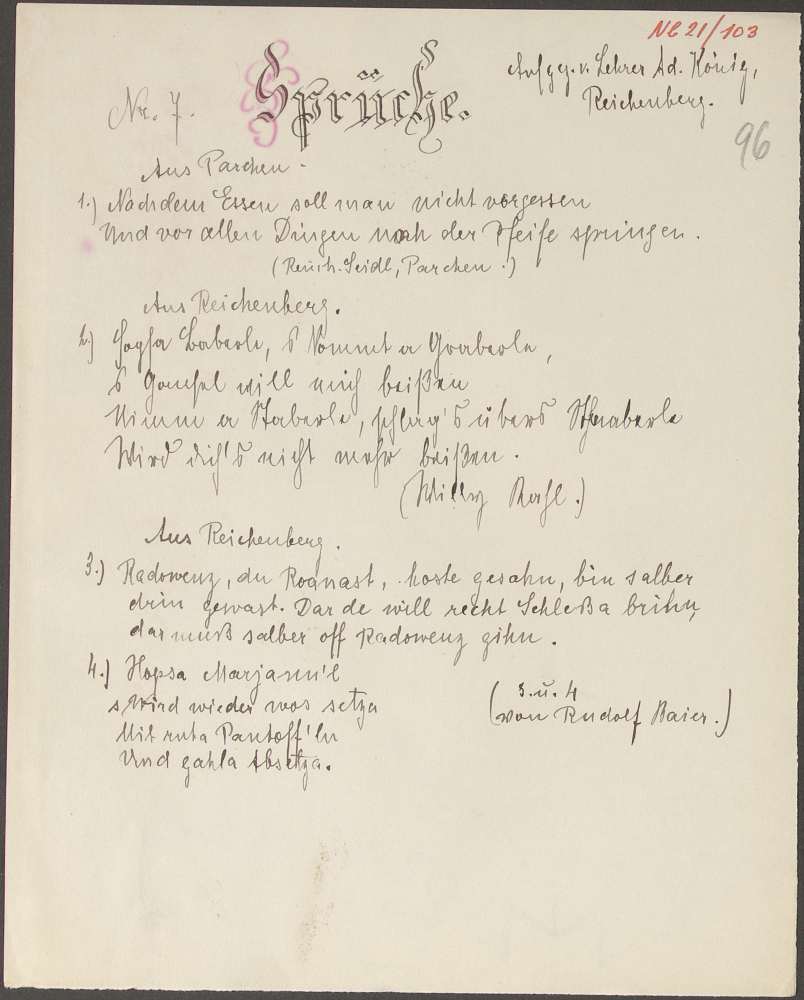 NC 21/103
Aufgez. v. Lehrer Ad. König,
Reichenberg.
Nr. 7.
Sprüche.
96
Aus Parchen.
1.) Nach dem Essen soll man nicht vergessen
Und vor allen Dingen nach der Pfeife springen.
(Reinh. Seidl, Parchen.)
Aus Reichenberg.
2.) Hopsa Baberle, s kommt a Graberle,
s will mich beißen
Nimm a Staberle, schlag's übers Schnaberle
Wird dich's nicht mehr beißen.
(Willy .)
Aus Reichenberg.
3.) Radowenz, du Roanast, hoste gesahn, bin salber
drin gewast. Dar de will recht Schleßa brihn,
dar muß salber off Radowenz gihn.
4.) Hopsa Marjann'l
s wird wieder wos setza
Mit ruta Pantoff'ln
Und gahla Absetza.
(3. u. 4
von Rudolf Baier.)